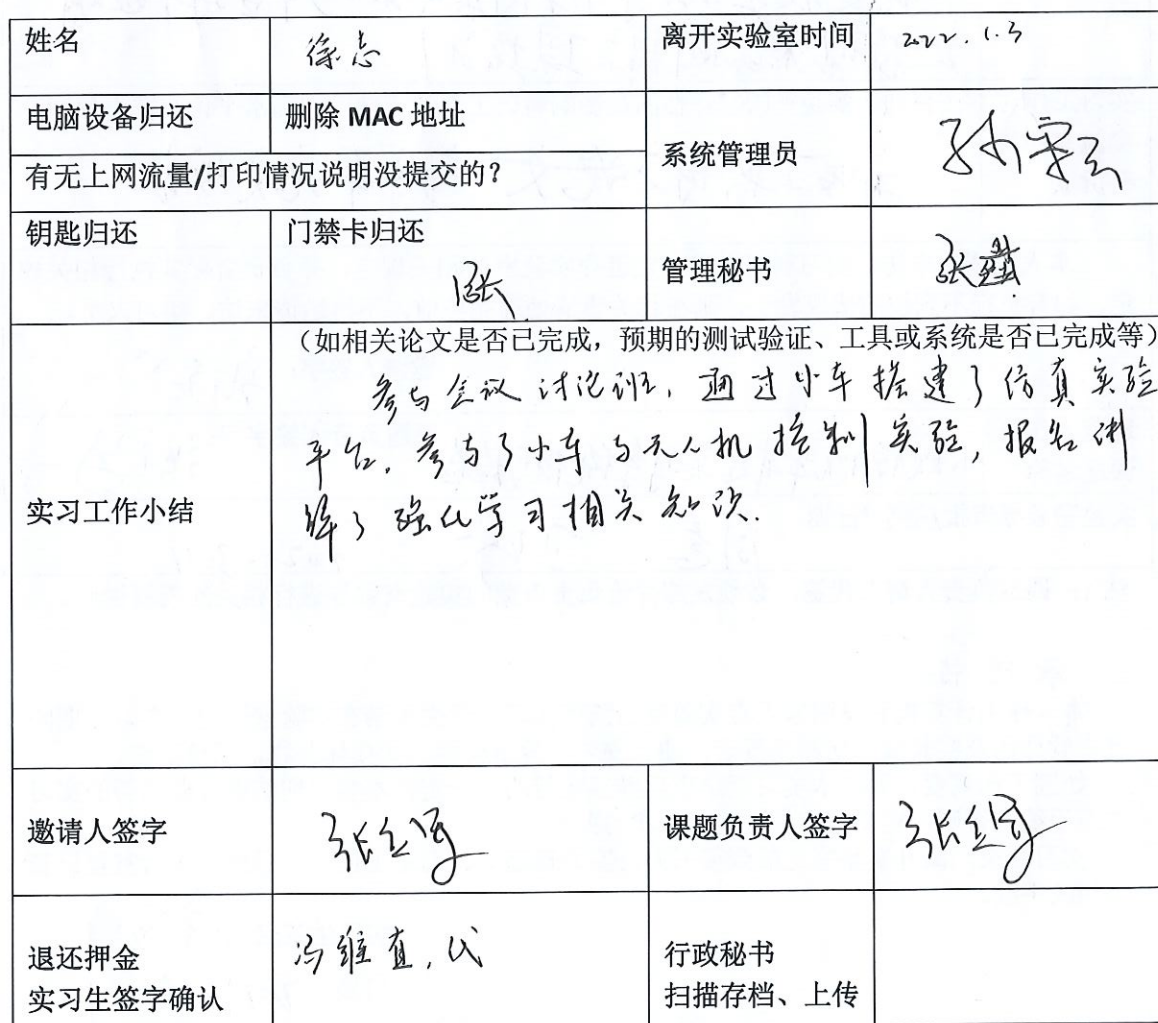 姓名 徐志 离开实验室时间 2022.1.3
电脑设备归还 删除 MAC 地址
系统管理员
有无上网流量/打印情况说明没提交的？
钥匙归还 门禁卡归还
张 管理秘书 张
（如相关论文是否已完成，预期的测试验证、工具或系统是否已完成等）
参与会议讨论班，通过小车搭建了仿真实验
平台，参与了小车与无人机控制实验，报告讲
解了强化学习相关知识.
实习工作小结
邀请人签字 张立军 课题负责人签字 张立军
退还押金 冯维直，代 行政秘书
实习生签字确认 扫描存档、上传